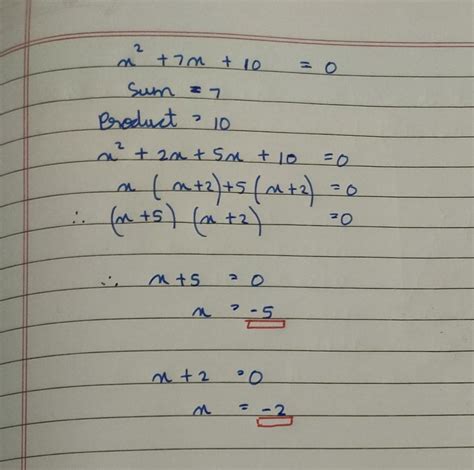 x² + 7x + 10 = 0
Sum = 7
Product = 10
x² + 2x + 5x + 10 = 0
x (x+2) + 5 (x+2) = 0
∴ (x+5) (x+2) = 0
∴ x+5 = 0
x = -5
x + 2 = 0
x = -2